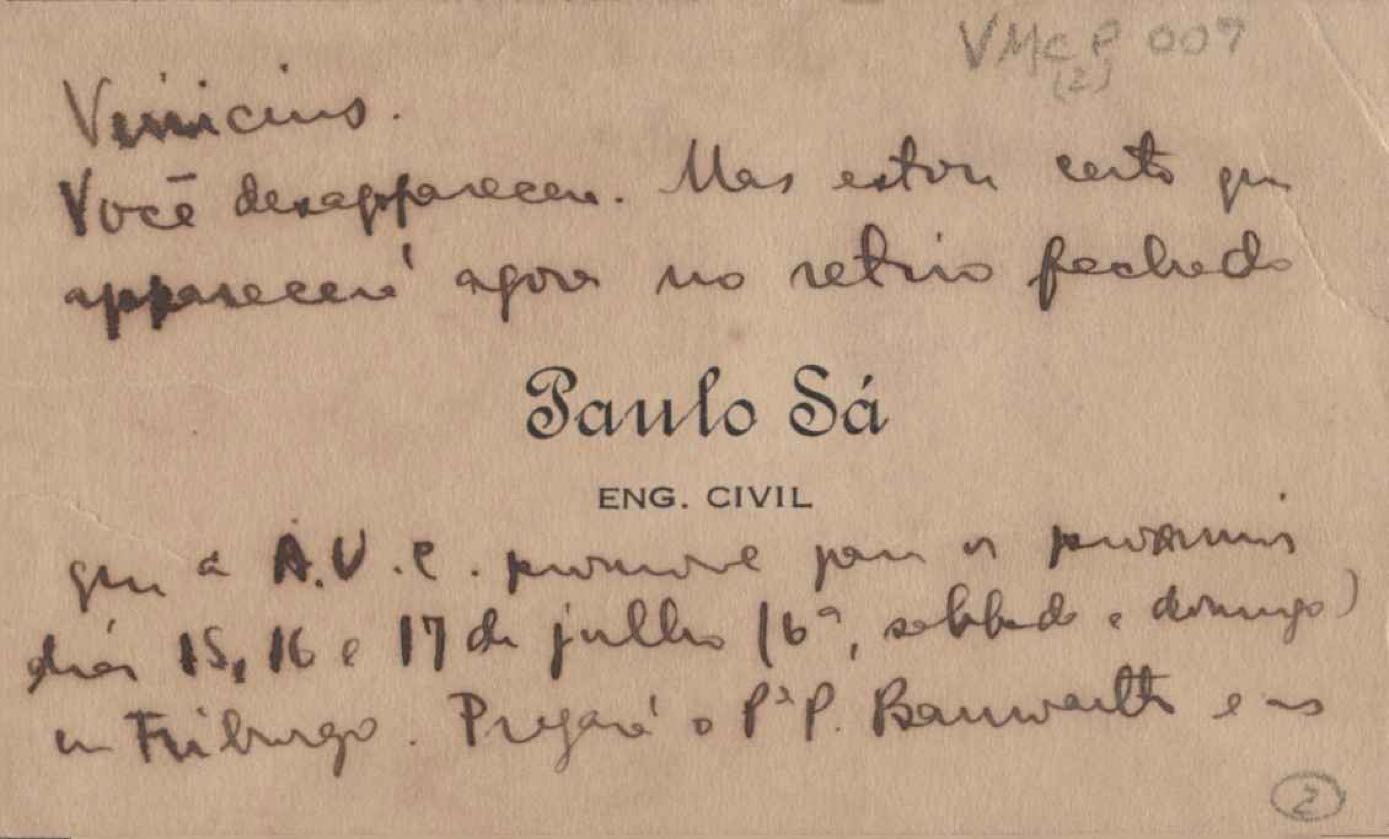 VMcP 007
(2)
Vinicius.
Você desappareceu. Mas estou certo que
apparecerá agora no retiro fechado
Paulo Sá
ENG. CIVIL
que a A.U.C. promove para os proximos
dias 15, 16 e 17 de julho (6ª, sabbado e domingo)
em Friburgo. Pregará o Pᵉ P. Bannwarth e as
2